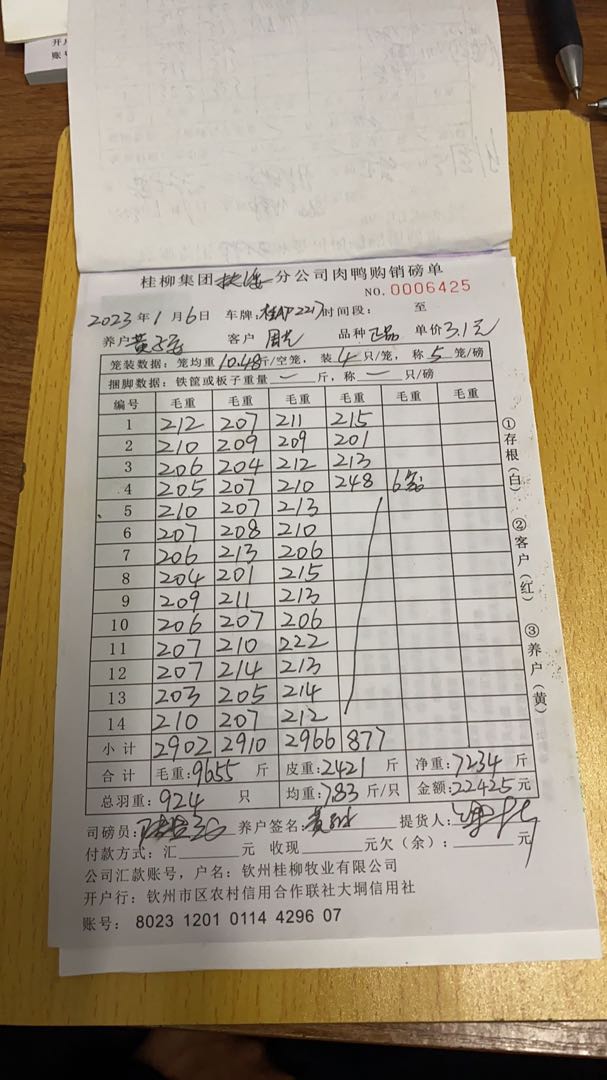 开户
账号
桂柳集团 分公司肉鸭购销磅单
NO. 0006425
2023年1月6日 车牌: 桂AP2217 时间段: 至
养户 黄 客户 周 品种 正品 单价 3.1元
笼装数据: 笼均重 10.48斤/空笼, 装 4 只/笼, 称 5 笼/磅
捆脚数据: 铁筐或板子重量 — 斤, 称 — 只/磅
编号 毛重 毛重 毛重 毛重 毛重 毛重
1 212 207 211 215
2 210 209 209 201
3 206 204 212 213
4 205 207 210 248 6笼
5 210 207 213
6 207 208 210
7 206 213 206
8 204 201 215
9 209 211 213
10 206 207 206
11 207 210 222
12 207 214 213
13 203 205 214
14 210 207 212
小计 2902 2910 2966 877
合计 毛重: 9655 斤 皮重: 2421 斤 净重: 7234 斤
总羽重: 924 只 均重: 7.83 斤/只 金额: 22425 元
司磅员: 养户签名: 黄 提货人:
付款方式: 汇 元 收现 元欠(余): 元
公司汇款账号, 户名: 钦州桂柳牧业有限公司
开户行: 钦州市区农村信用合作联社大垌信用社
账号: 8023 1201 0114 4296 07
①存根(白) ②客户(红) ③养户(黄)